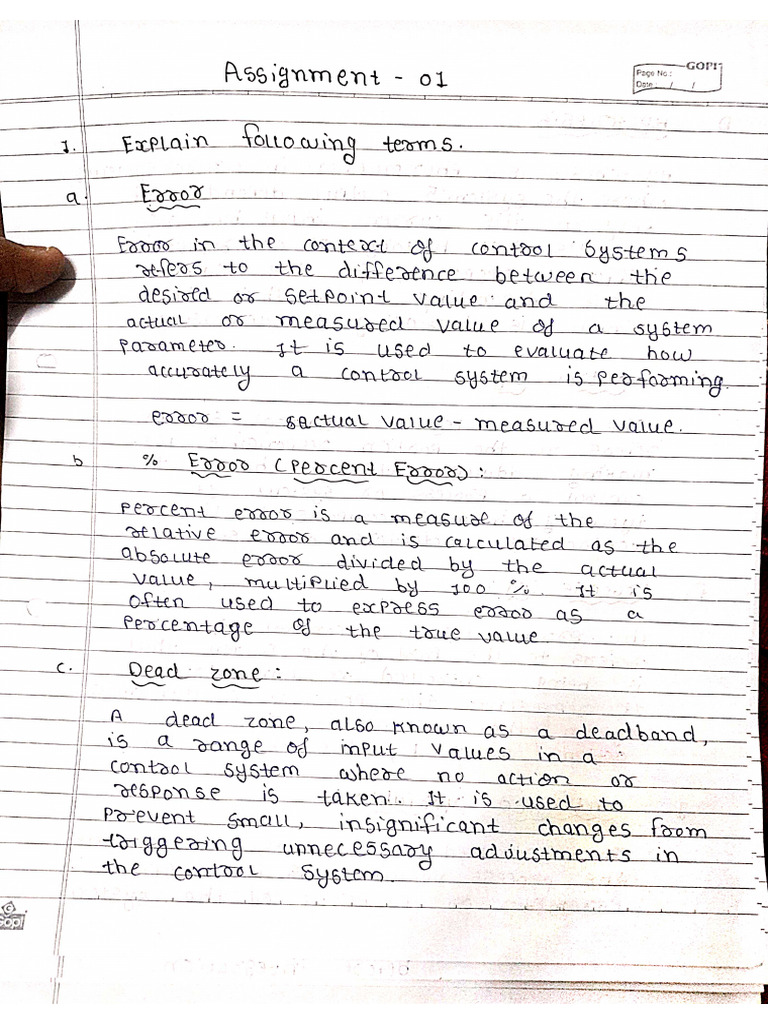 Assignment - 01
GOPI
Page No.:
Date: / /
1. Explain following terms.
a. Error
Error in the context of control systems
refers to the difference between the
desired or setpoint value and the
actual or measured value of a system
parameter. It is used to evaluate how
accurately a control system is performing.
error = sactual value - measured value.
b % Error (Percent Error) :
Percent error is a measure of the
relative error and is calculated as the
absolute error divided by the actual
value, multiplied by 100 %. It is
often used to express error as a
percentage of the true value.
c. Dead zone :
A dead zone, also known as a deadband,
is a range of input values in a
control system where no action or
response is taken. It is used to
prevent small, insignificant changes from
triggering unnecessary adjustments in
the control system.
Gopi